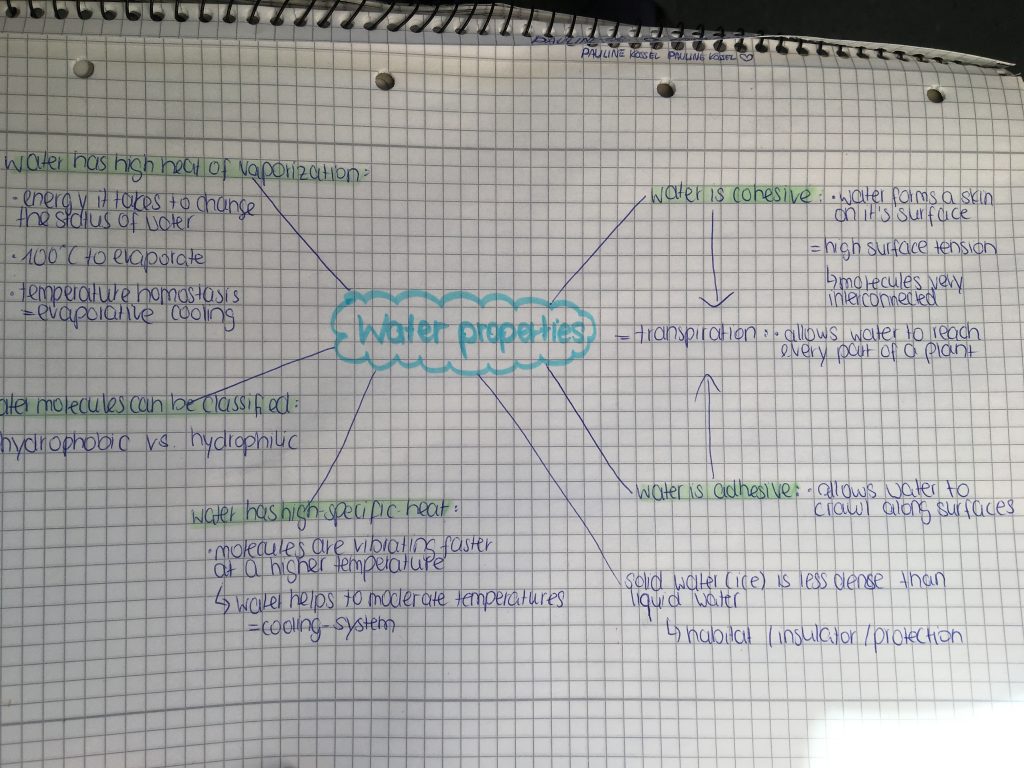 PAULINE KOSSEL PAULINE KOSSEL
Water properties
water has high heat of vaporization:
· energy it takes to change
the status of water
· 100°C to evaporate
· temperature homostasis
= evaporative cooling
ater molecules can be classified:
hydrophobic vs. hydrophilic
water has high-specific-heat:
· molecules are vibrating faster
at a higher temperature
↳ water helps to moderate temperatures
= cooling-system
water is cohesive: · water forms a skin
on it's surface
= high surface tension
↳ molecules very
interconnected
= transpiration: · allows water to reach
every part of a plant
water is adhesive: · allows water to
crawl along surfaces
solid water (ice) is less dense than
liquid water
↳ habitat / insulator / protection